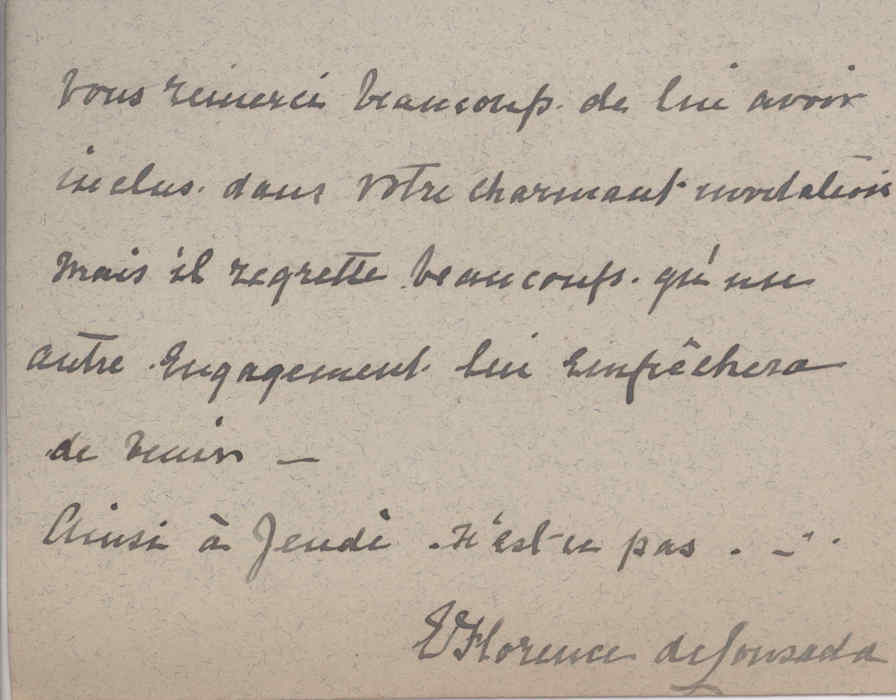 vous remercie beaucoup de lui avoir
inclus dans votre charmant invitation
mais il regrette beaucoup qu'un
autre engagement lui empêchera
de venir —
Ainsi à Jeudi. N'est-ce pas. —
Florence de Lousada